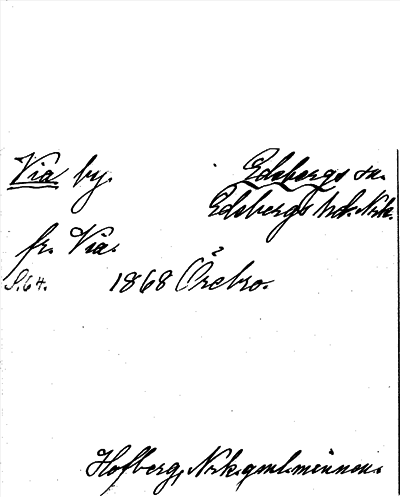 Via by. Edsbergs sn.
Edsbergs hd. Nrk.
fr. Via.
S. 64. 1868 Örebro.
Hofberg, Nrk. gml. minnen.